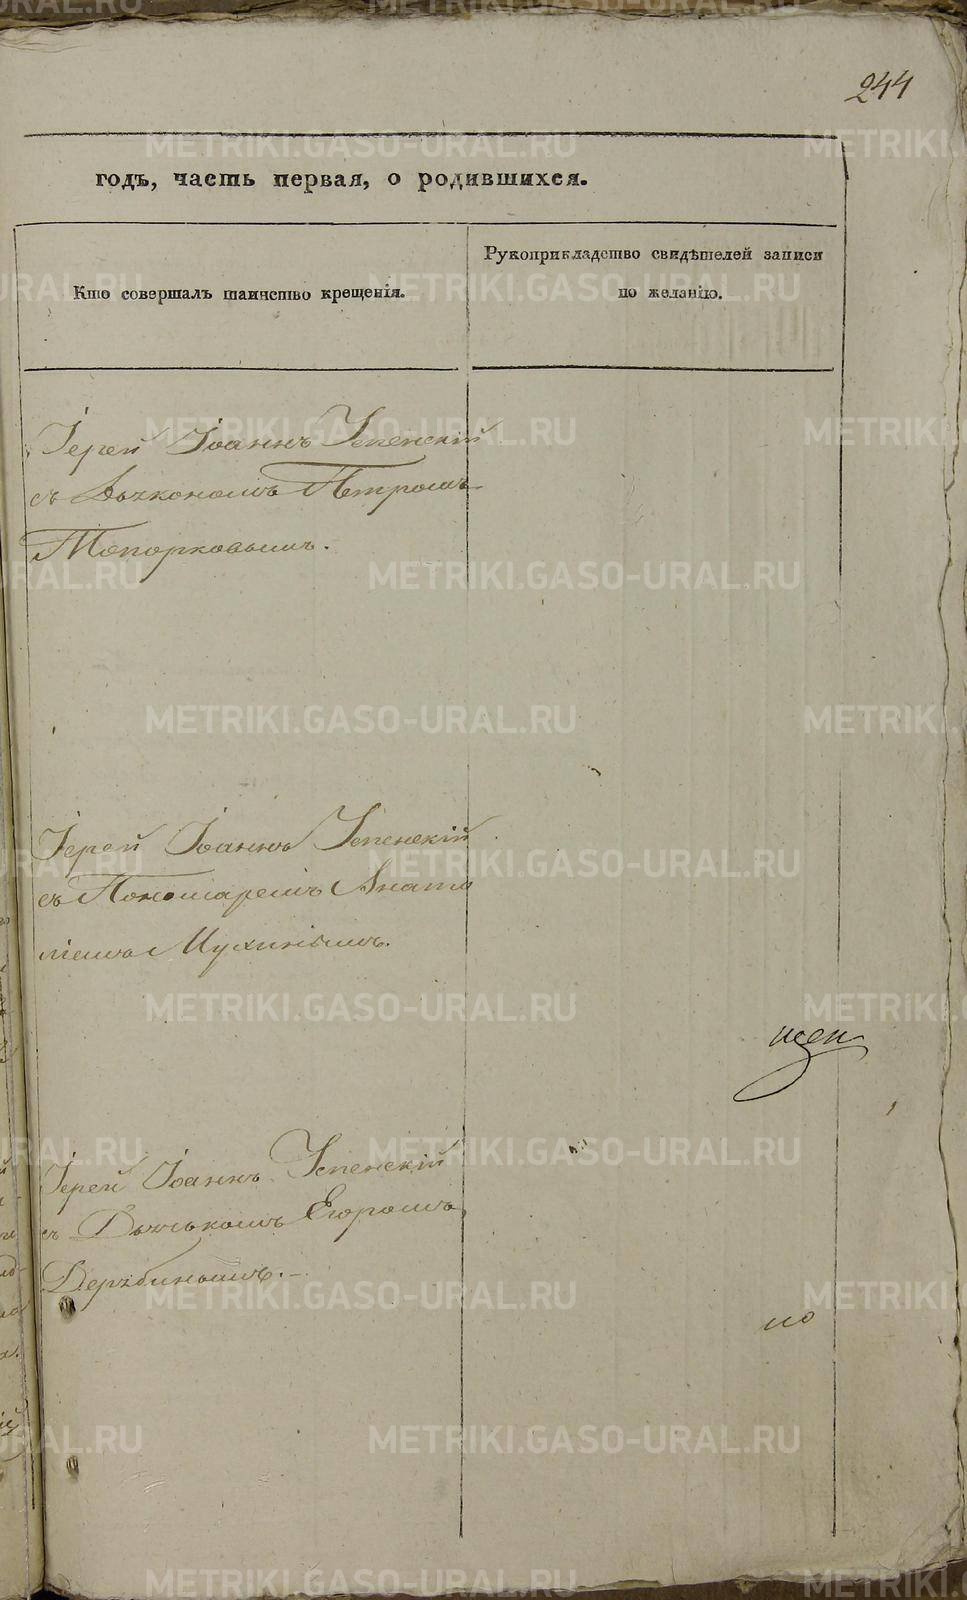 244
годъ, часть первая, о родившихся.
Кто совершалъ таинство крещенія.
Рукоприкладство свидѣтелей записи
по желанію.
Іерей Іоаннъ Успенскій
съ Дьякономъ Петромъ
Топорковымъ.
Іерей Іоаннъ Успенскій
съ Пономаремъ Анато
ліемъ Мухинымъ.
Іерей Іоаннъ Успенскій
съ Дьячкомъ Егоромъ
Дерябинымъ.
но
METRIKI.GASO-URAL.RU